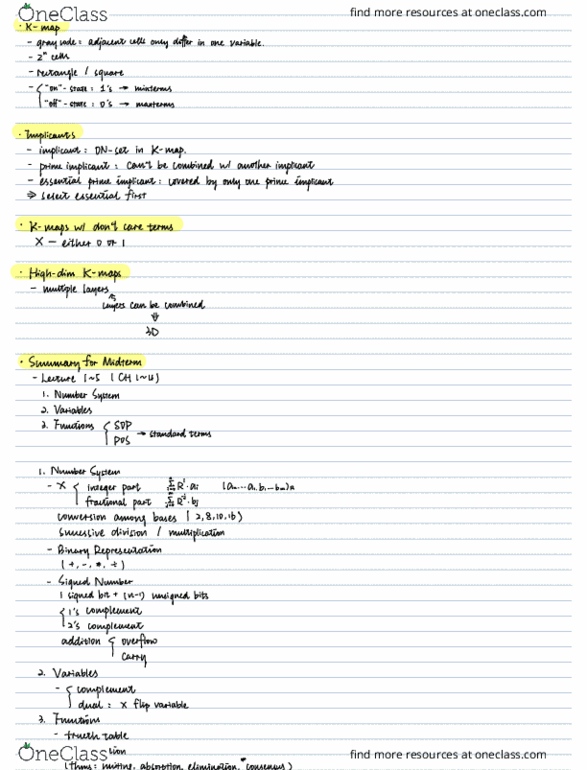 OneClass find more resources at oneclass.com
· K-map
- gray code: adjacent cells only differ in one variable.
- 2ⁿ cells
- rectangle / square
- { "on"-state: 1's → minterms
"off"-state: 0's → maxterms
· Implicants
- implicant: ON-set in K-map.
- prime implicant: can't be combined w/ another implicant
- essential prime implicant: covered by only one prime implicant
⇒ select essential first
· K-maps w/ don't care terms
X - either 0 or 1
· High-dim K-maps
- multiple layers
layers can be combined
⇓
3D
· Summary for Midterm
- Lecture 1~5 ( CH 1~4)
1. Number System
2. Variables
3. Functions { SOP
POS → standard terms
1. Number System
- X { integer part
fractional part
conversion among bases ( 2,8,10,16)
successive division / multiplication
- Binary Representation
( +, -, *, ÷)
- Signed Number
1 signed bit + (n-1) unsigned bits
{ 1's complement
2's complement
addition { overflow
carry
2. Variables
- { complement
dual: X flip variable
3. Functions
- truth table
OneClass find more resources at oneclass.com
(thms: uniting, absorption, elimination, consensus)